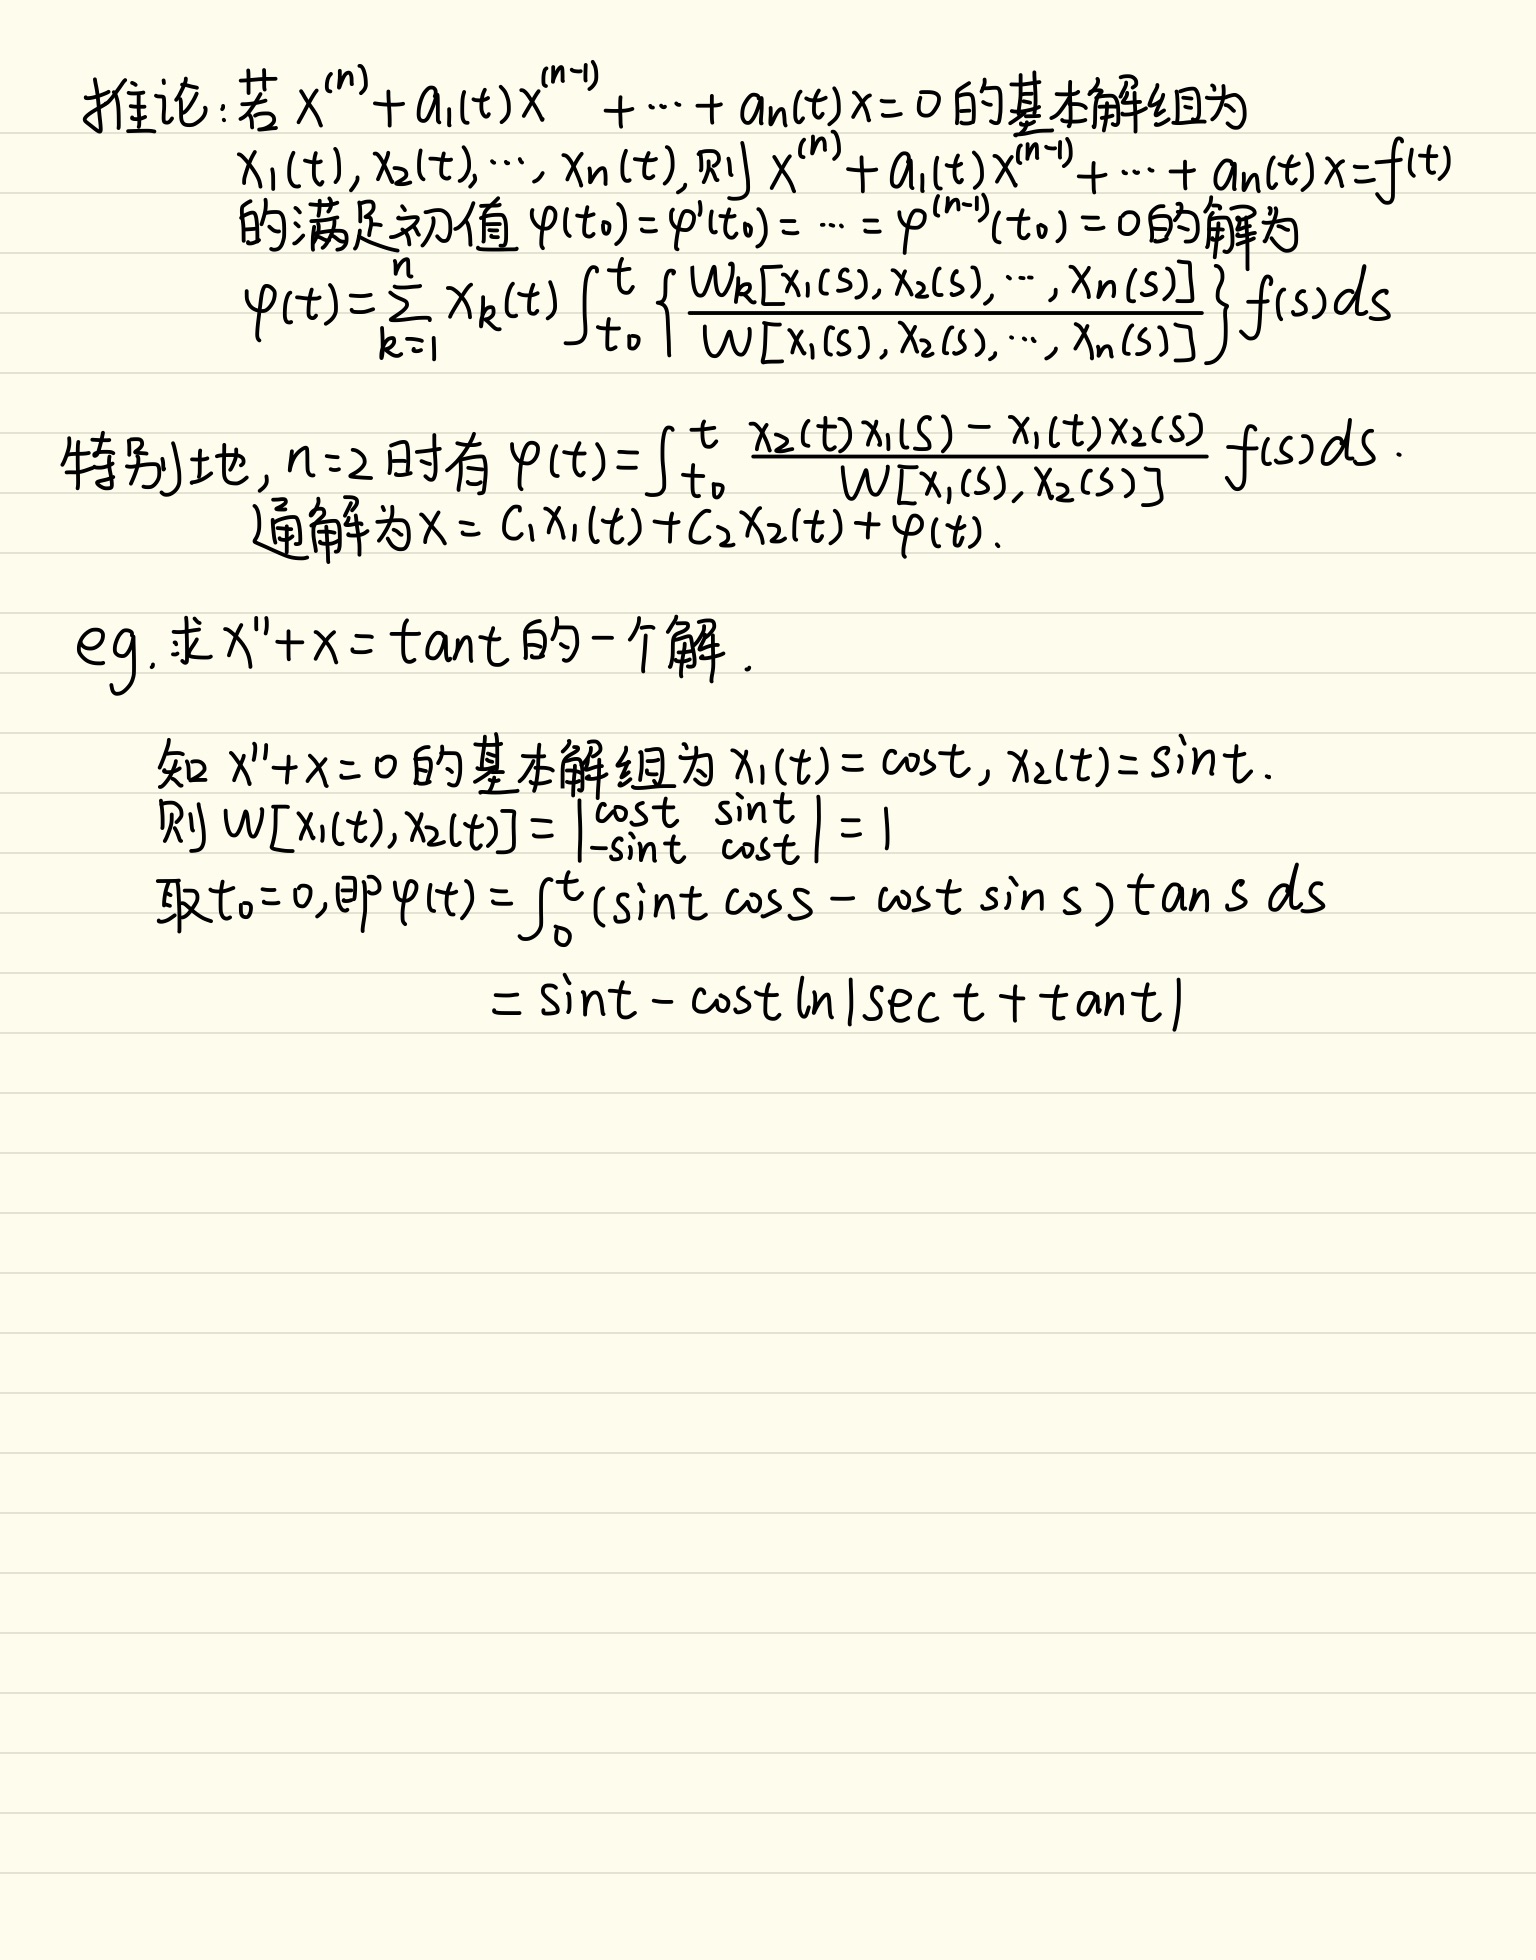 推论:若 x⁽ⁿ⁾+a₁(t)x⁽ⁿ⁻¹⁾+⋯+aₙ(t)x=0的基本解组为
x₁(t),x₂(t),⋯,xₙ(t),则 x⁽ⁿ⁾+a₁(t)x⁽ⁿ⁻¹⁾+⋯+aₙ(t)x=f(t)
的满足初值 φ(t₀)=φ'(t₀)=⋯=φ⁽ⁿ⁻¹⁾(t₀)=0的解为
φ(t)=∑_{k=1}^{n} x_k(t)∫_{t₀}^{t} {W_k[x₁(s),x₂(s),⋯,xₙ(s)] / W[x₁(s),x₂(s),⋯,xₙ(s)]} f(s)ds
特别地,n=2时有 φ(t)=∫_{t₀}^{t} (x₂(t)x₁(s)-x₁(t)x₂(s)) / W[x₁(s),x₂(s)] f(s)ds.
通解为x=c₁x₁(t)+c₂x₂(t)+φ(t).
eg.求x''+x=tant的一个解.
知 x''+x=0的基本解组为x₁(t)=cost,x₂(t)=sint.
则 W[x₁(t),x₂(t)]=|cost sint; -sint cost|=1
取t₀=0,即φ(t)=∫_{0}^{t}(sint coss-cost sin s)tan s ds
=sint-cost ln|sec t+tant|